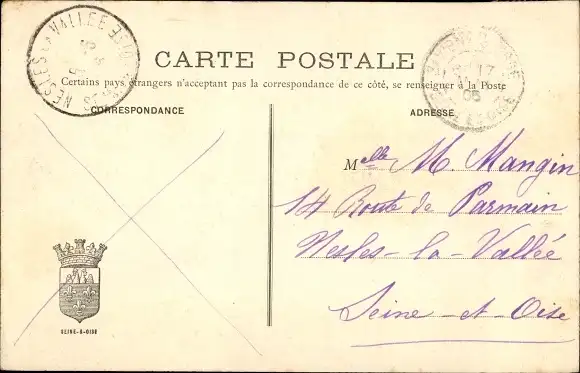 NESLES LA VALLEE
CARTE POSTALE
Certains pays étrangers n'acceptant pas la correspondance de ce côté, se renseigner à la Poste
CORRESPONDANCE
ADRESSE
17
05
Melle M. Mangin
14 Route de Parmain
Nesles-la-Vallée
Seine-et-Oise
SEINE-&-OISE